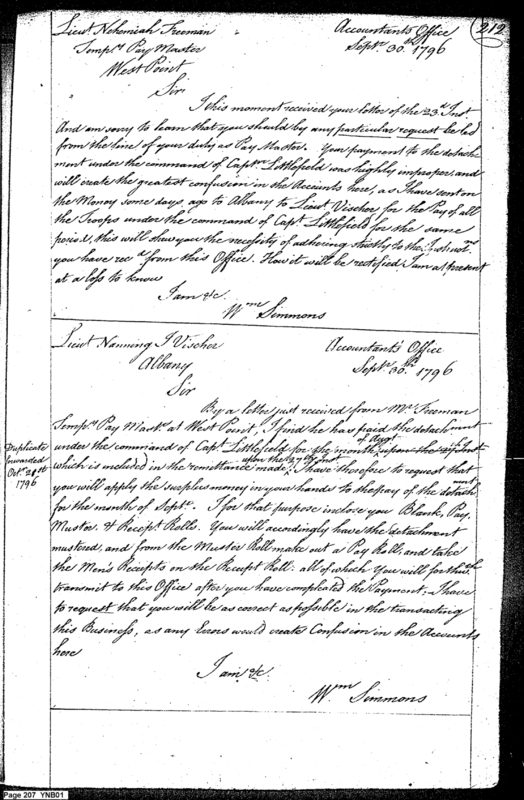 212
Lieut. Nehemiah Freeman
Accountants Office
Tempy. Pay Master
Septr. 30th 1796
West Point
Sir
I this moment received your letter of the 23d Inst.
And am sorry to learn that you should by any particular request be led
from the line of your duty as Pay Master. Your payment to the detach-
ment under the command of Captn. Littlefield was highly improper, and
will create the greatest confusion in the Accounts here, as I have sent on
the Money some days ago to Albany to Lieut. Vischer for the Pay of all
the Troops under the command of Capt. Littlefield for the same
period, this will shew you the necessity of adhering strictly to the Instrucns.
you have recd. from this Office. How it will be rectified I am at present
at a loss to know
I am &c
Wm. Simmons
Lieut. Nanning J Vischer
Accountant's Office
Albany
Septr. 30th 1796
Sir
By a letter just received from Mr. Freeman
Tempy. Pay Mastr. at West Point, I find he has paid the detachment
under the command of Capt. Littlefield for the month of Augt. upon the 27 Inst
which is included in the remittance made upon the 27 Inst. I have therefore to request that
you will apply the surplus money in your hands to the pay of the detachment
for the month of Septr. I for that purpose inclose you Blank, Pay,
Muster, & Receipt. Rolls. You will accordingly have the detachment
mustered, and from the Muster Roll make out a Pay Roll, and take
the Men's Receipts on the Receipt Roll: all of which You will forthwith
transmit to this Office after you have compleated the Payment; - I have
to request that you will be as correct as possible in the transacting
this Business, as any Errors would create Confusion in the Accounts
here
I am &c.
Wm. Simmons
Duplicate
forwarded
Octr. 21st
1796
Page 207 YNB01